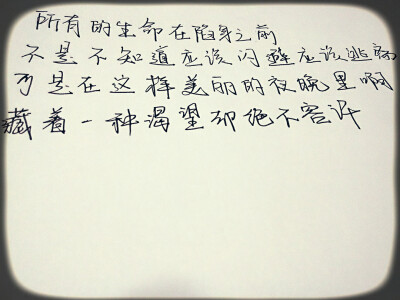 所有的生命在陷身之前
不是不知道应该闪避应该逃离
可是在这样美丽的夜晚里啊
藏着一种渴望却绝不容许